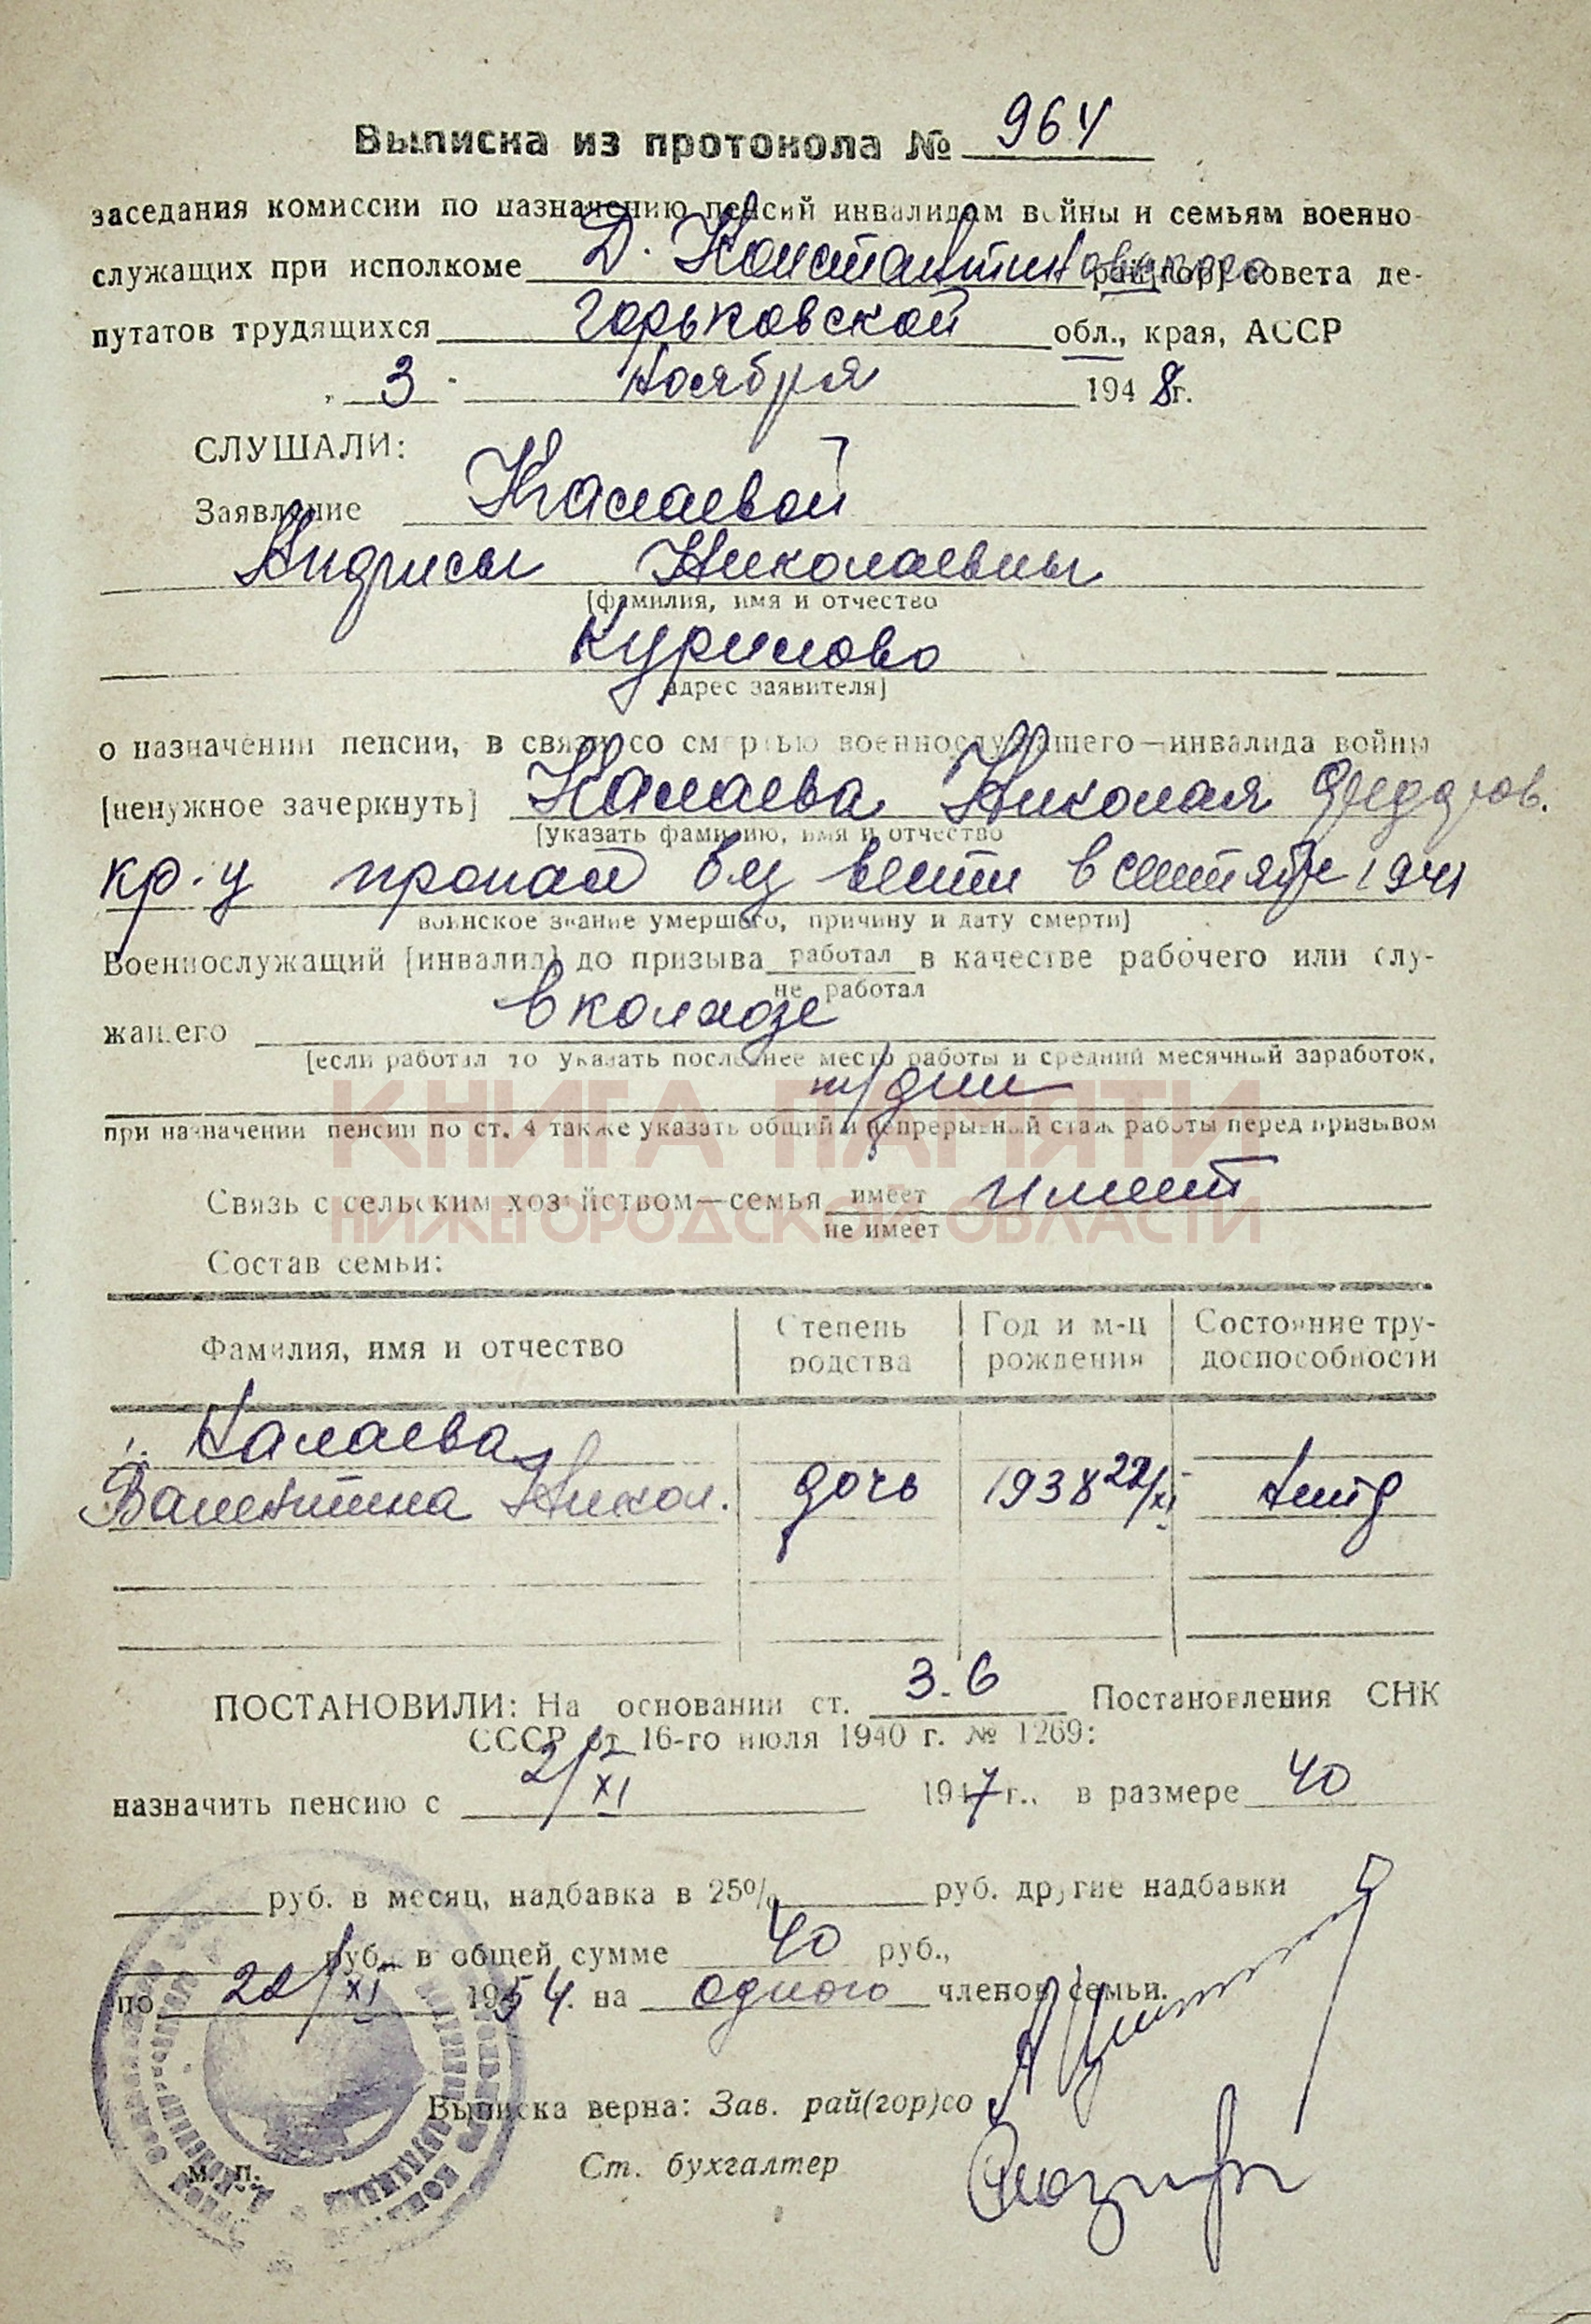 Выписка из протокола № 964
заседания комиссии по назначению пенсий инвалидам войны и семьям военно-
служащих при исполкоме Д. Константиновского рай[гор] совета де-
путатов трудящихся Горьковской обл., края, АССР
„ 3 " ноября 1948г.
СЛУШАЛИ:
Заявление Калаевой
Николаевны
[фамилия, имя и отчество
Курилово
адрес заявителя]
о назначении пенсии, в связи со смертью военнослужащего—инвалида войны
[ненужное зачеркнуть] Калаева Николая Федоров.
[указать фамилию, имя и отчество
кр-ц пропал без вести в сентябре 1941
воинское звание умершего, причину и дату смерти]
Военнослужащий [инвалид] до призыва работал в качестве рабочего или слу-
не работал
жащего в колхозе
[если работал то указать последнее место работы и средний месячный заработок,
т/дни
при назначении пенсии по ст. 4 также указать общий и непрерывный стаж работы перед призывом
КНИГА ПАМЯТИ
Связь с сельским хозяйством—семья имеет имеет
не имеет
НИЖЕГОРОДСКОЙ ОБЛАСТИ
Состав семьи:
Фамилия, имя и отчество Степень родства Год и м-ц рождения Состояние тру-доспособности
1. Калаева
Валентина Никол. дочь 1938 22/XI
ПОСТАНОВИЛИ: На основании ст. 3.6 Постановления СНК
СССР от 16-го июля 1940 г. № 1269:
назначить пенсию с 2/XI 1947 г., в размере 40
руб. в месяц, надбавка в 25% руб. другие надбавки
руб. в общей сумме 40 руб.,
по 22/XI 1954. на одного членов семьи.
Выписка верна: Зав. рай(гор)со
Ст. бухгалтер
м. п.